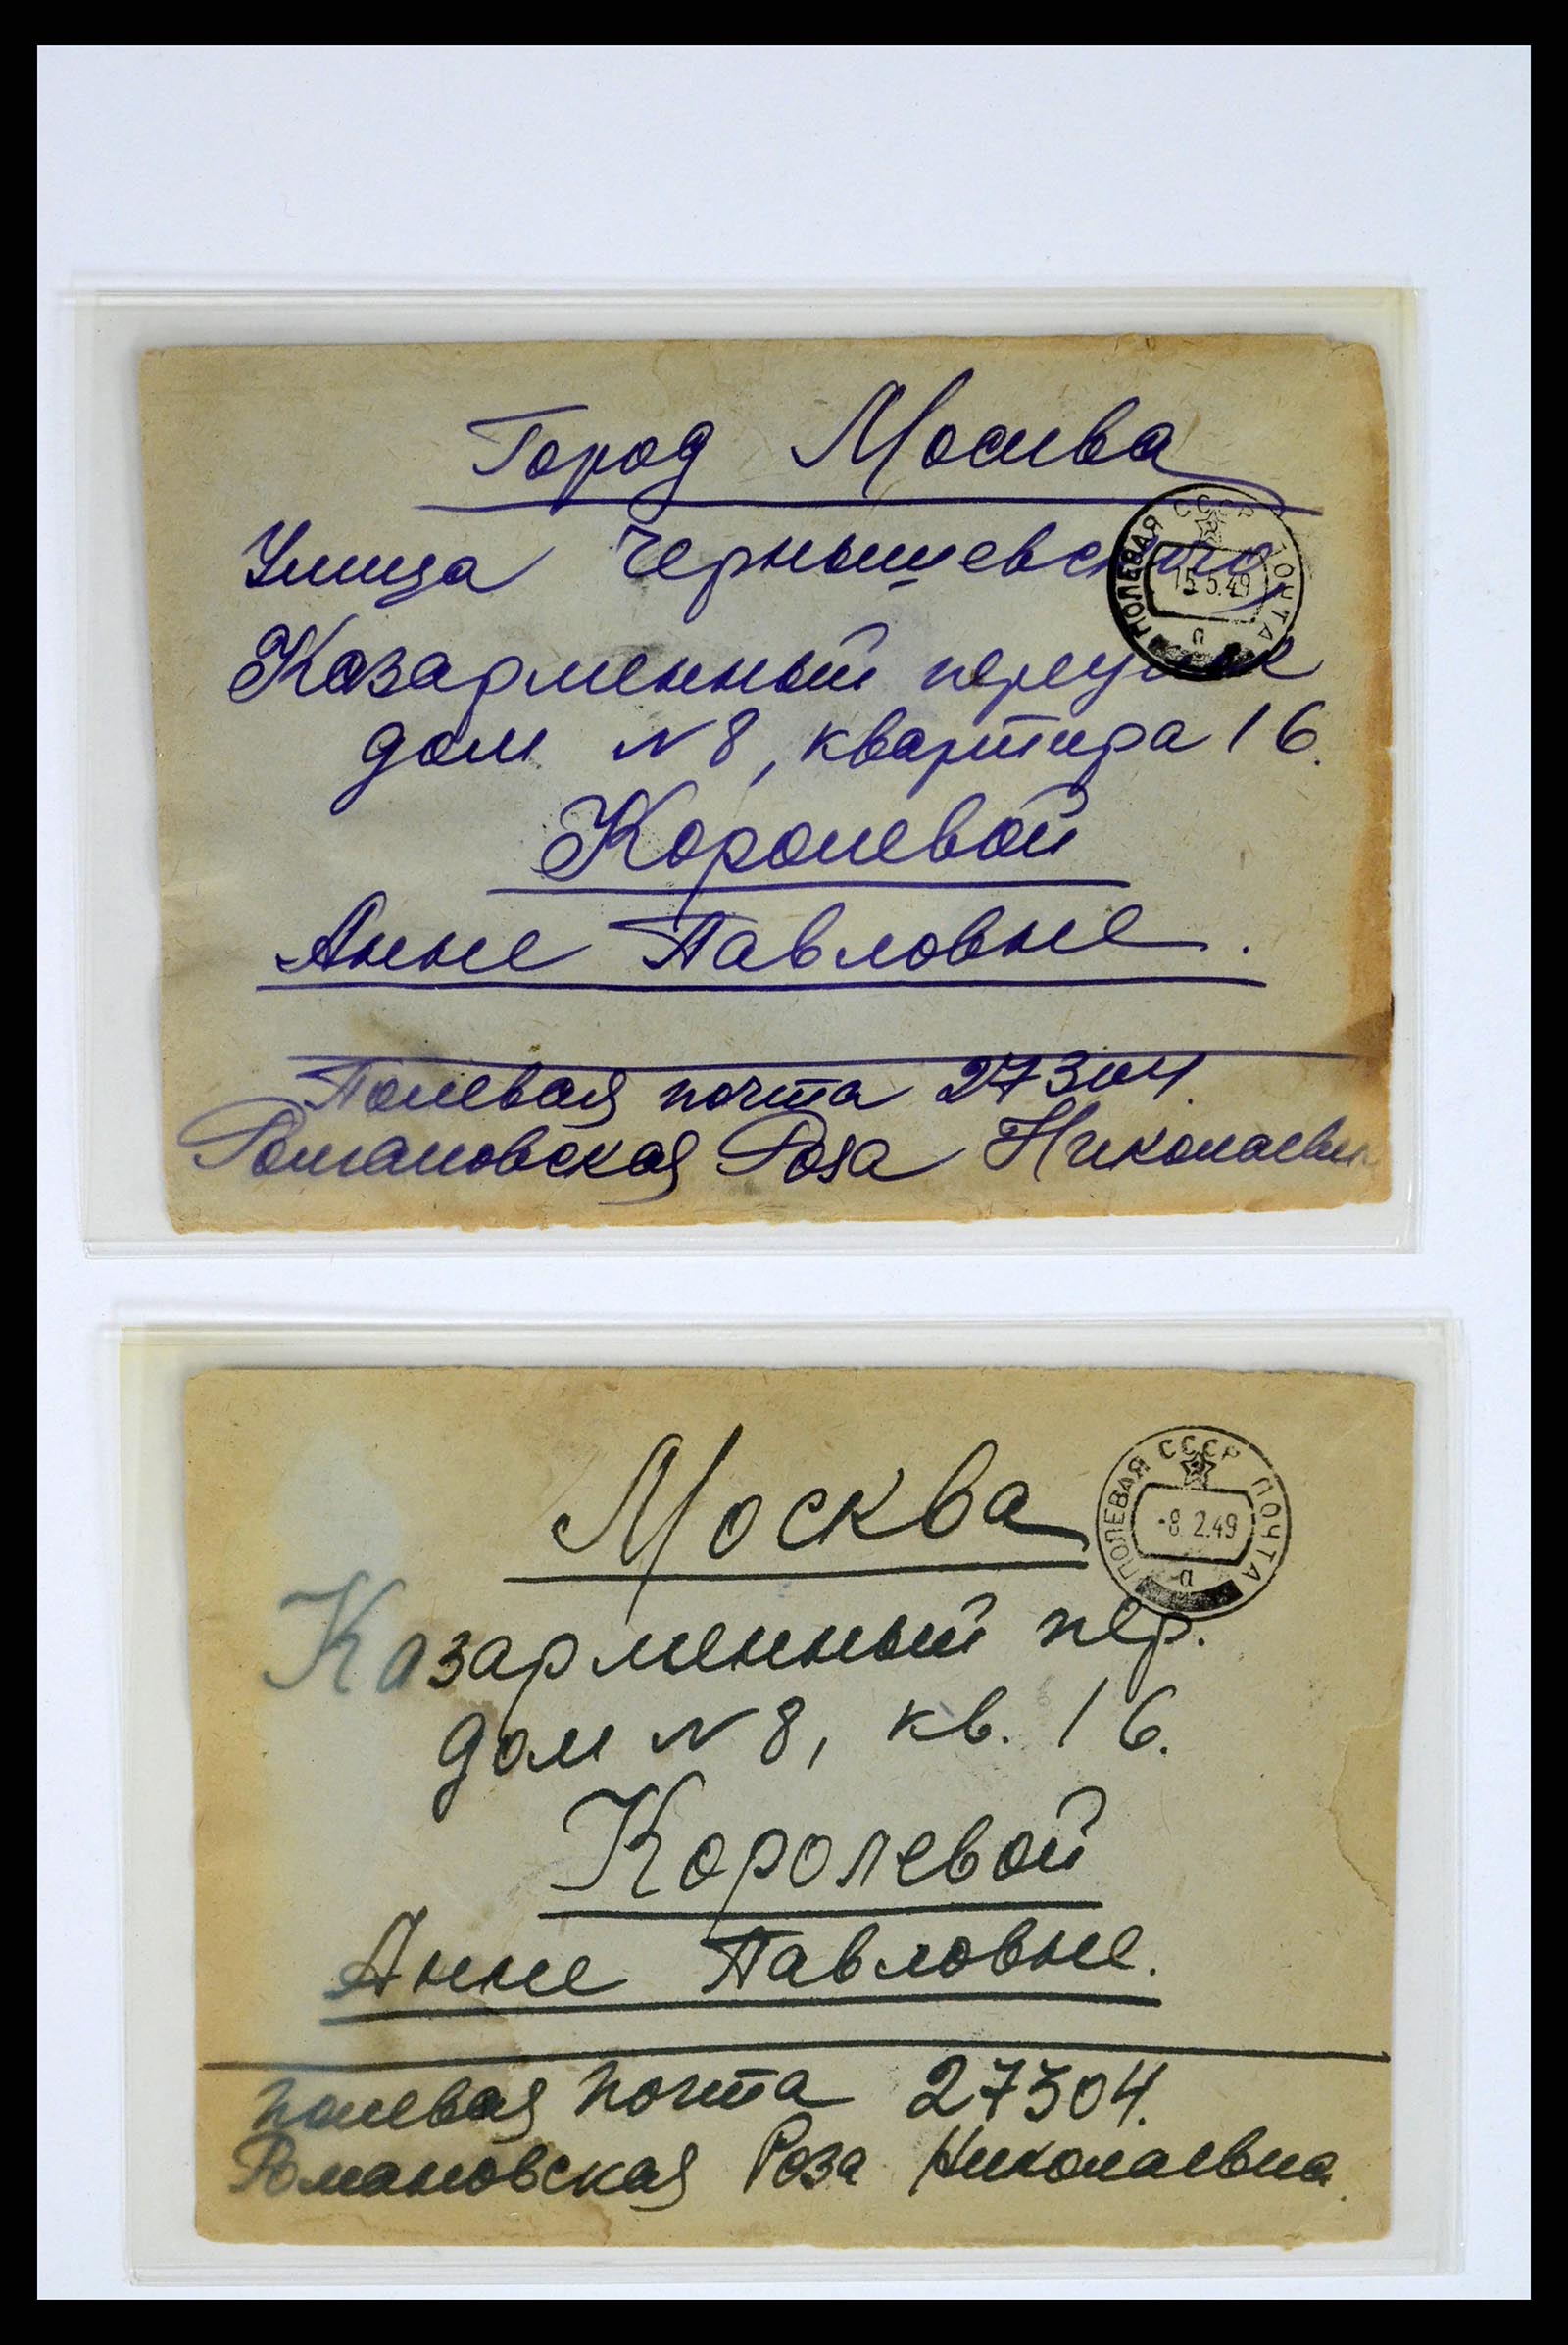 Город Москва
Улица Чернышевского
Казарменный переулок
дом N 8, квартира 16.
Королевой
Анне Павловне.
Полевая почта 27304.
Романовская Роза Николаевн
ПОЛЕВАЯ СССР ПОЧТА
15.5.49
а
Москва
Казарменный пер.
дом N 8, кв. 16.
Королевой
Анне Павловне.
полевая почта 27304.
Романовская Роза Николаевна.
ПОЛЕВАЯ СССР ПОЧТА
-8.2.49
а